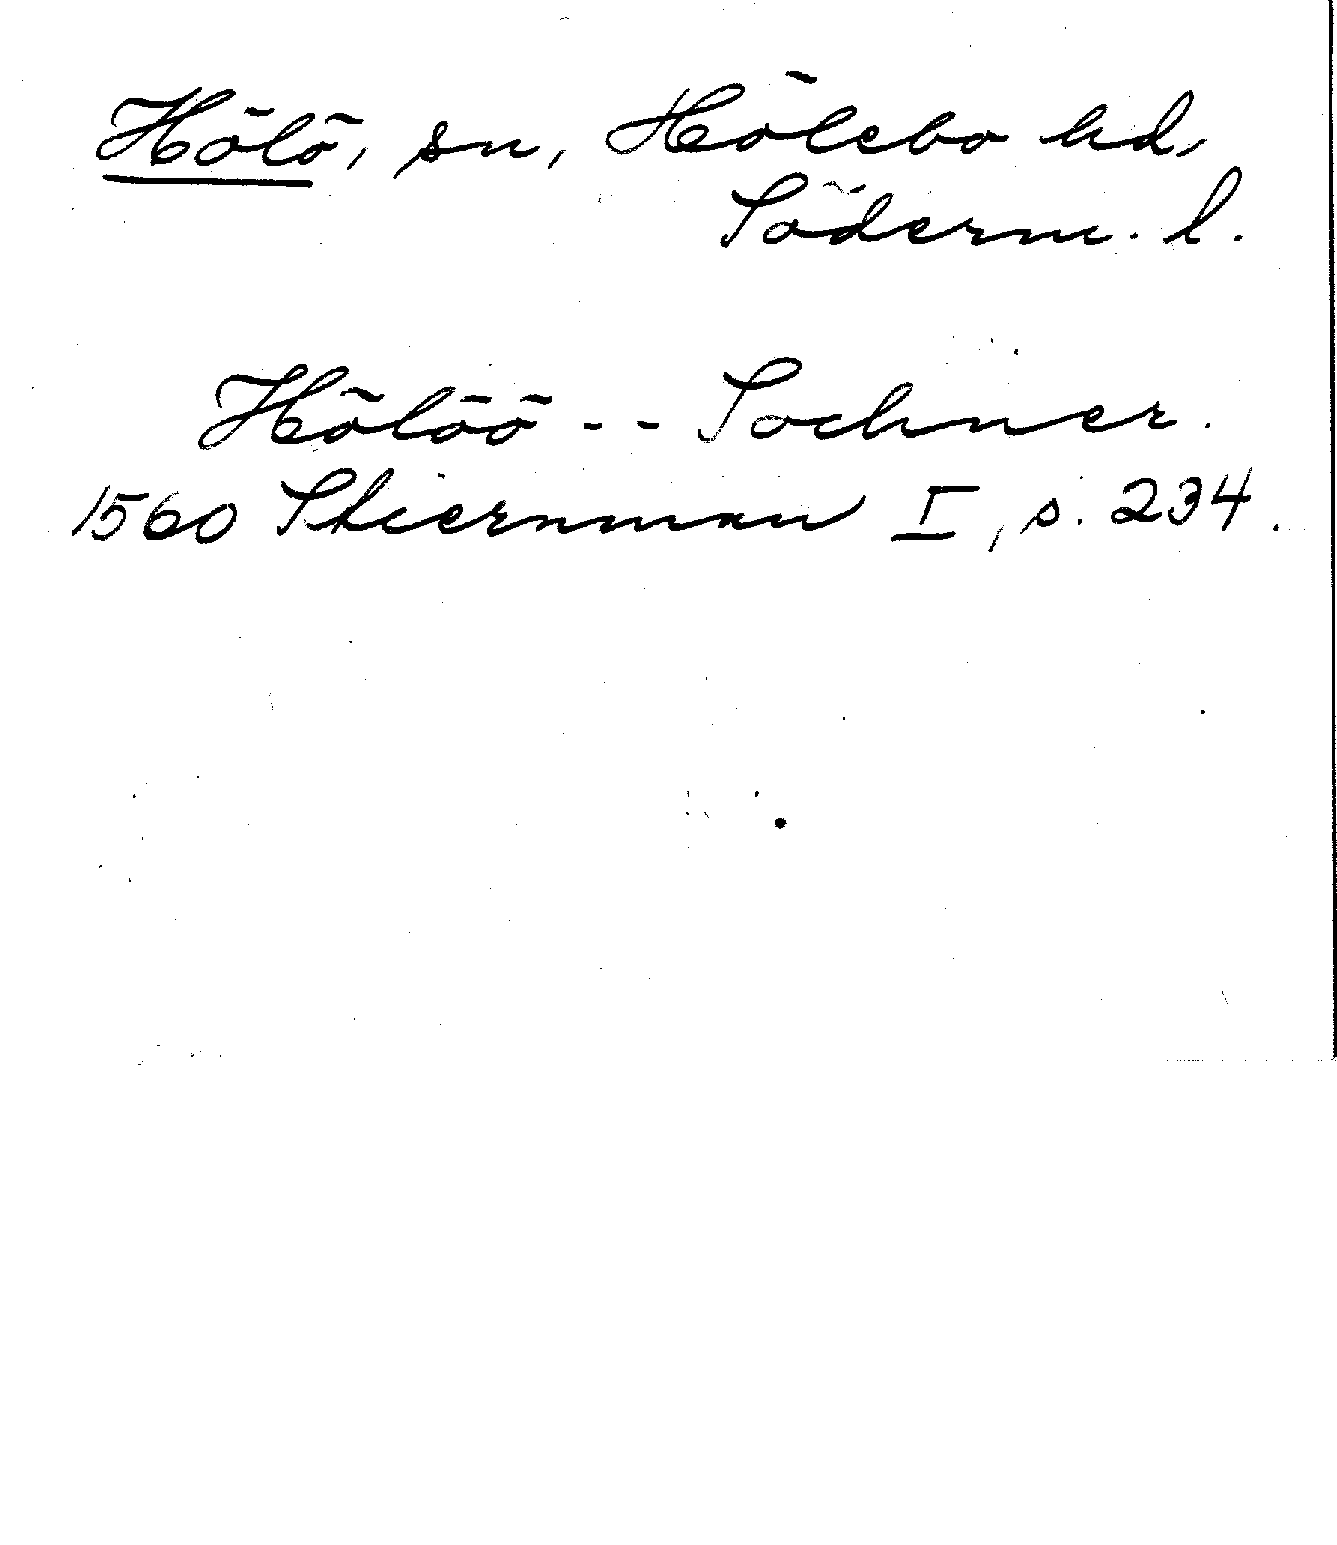 Hölö, sn, Hölebo hd,
Söderm. l.
Hölöö -- Sochner.
1560 Stiernman I, s. 234.